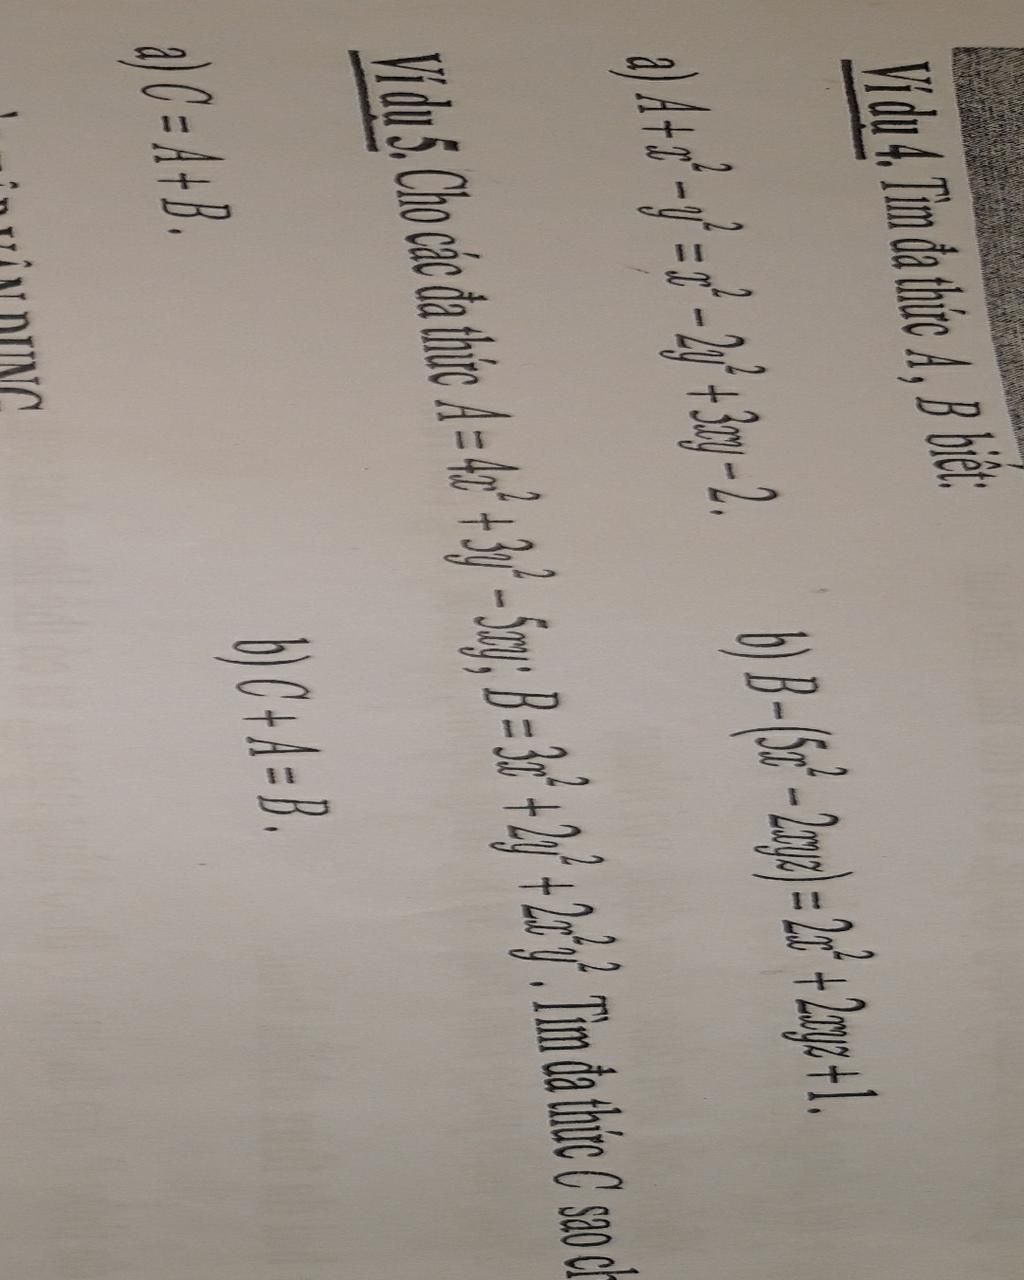 Ví dụ 4. Tìm đa thức A, B biết:
a) A + x² − y² = x² − 2y² + 3xy − 2. b) B − (5x² − 2xyz) = 2x² + 2xyz + 1.
Ví dụ 5. Cho các đa thức A = 4x² + 3y² − 5xy; B = 3x² + 2y² + 2x²y². Tìm đa thức C sao
a) C = A + B. b) C + A = B.